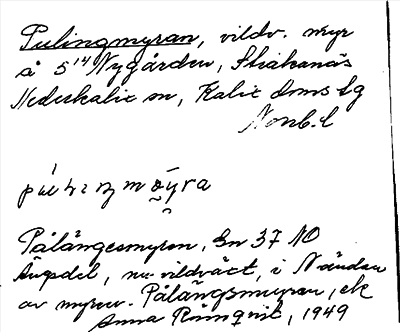 Pulingmyran, vildv. myr
å 5¹⁴ Nygården, Stråkanäs
Nederkalix sn, Kalix dms lg
Nonb. l

Pålängesmyren, Gn 37 NO
nu vildväxt, i Nändan
av myren. Pålängsmyran, ek
Anna Rönnqvist, 1949